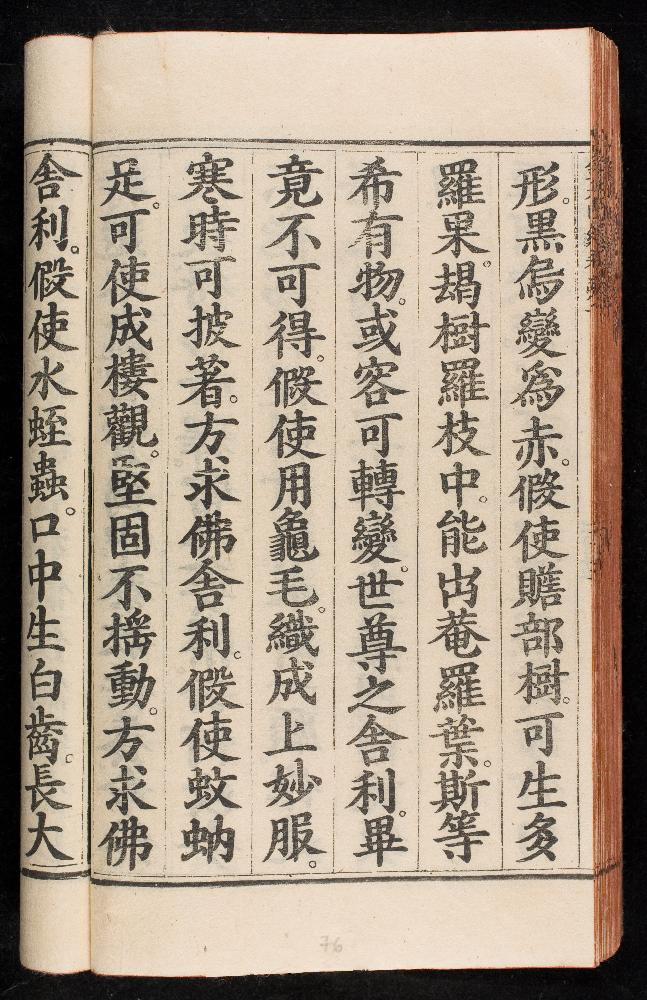 形。黒烏變爲赤。假使贍部樹。可生多
羅果。朅樹羅枝中。能出菴羅葉。斯等
希有物。或容可轉變。世尊之舍利。畢
竟不可得。假使用龜毛。織成上妙服。
寒時可披著。方求佛舍利。假使蚊蚋
足。可使成樓觀。堅固不摇動。方求佛
舍利。假使水蛭蟲。口中生白齒。長大
76